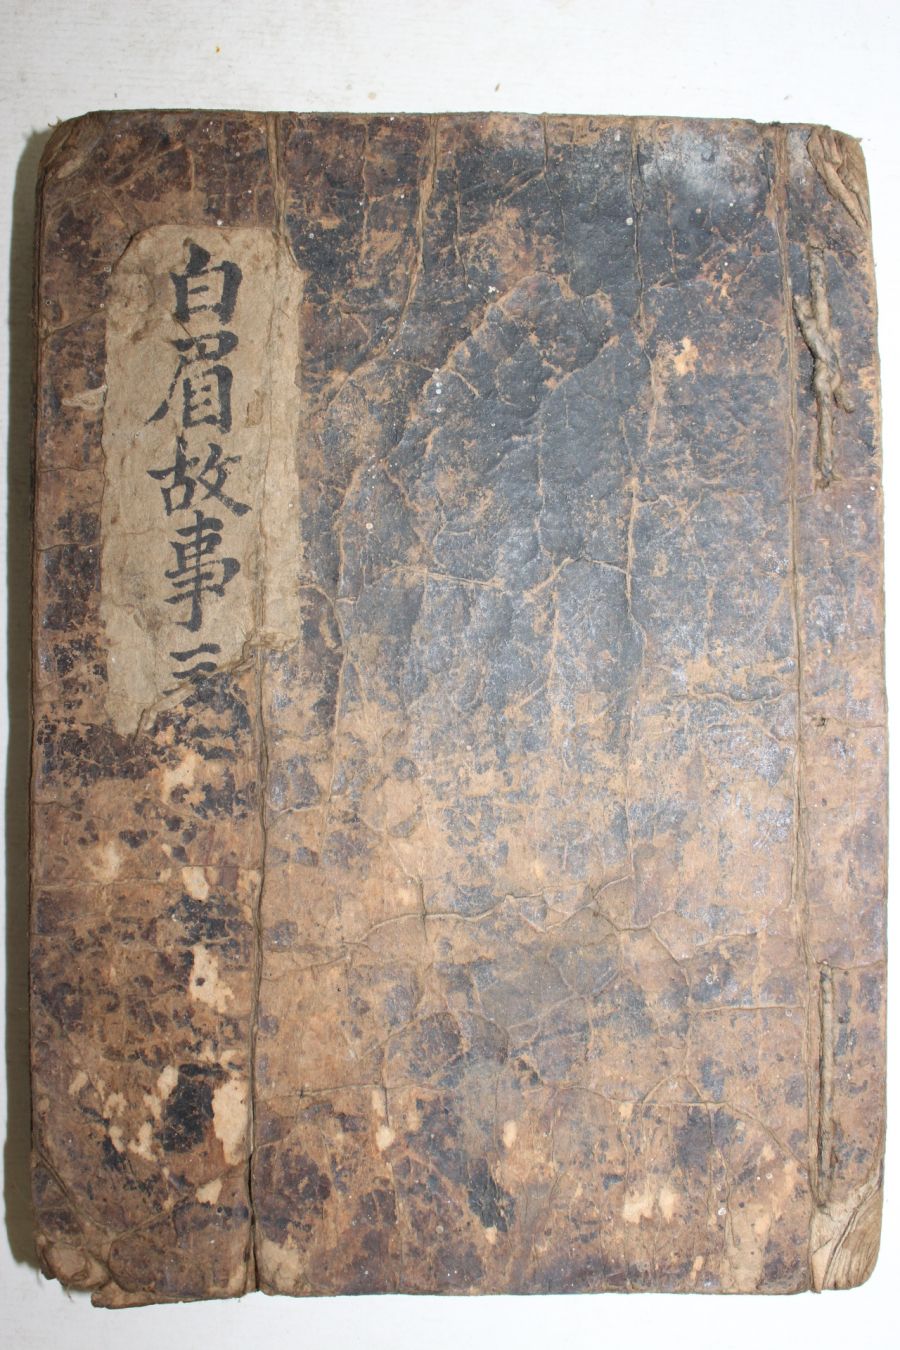 白眉故事 三